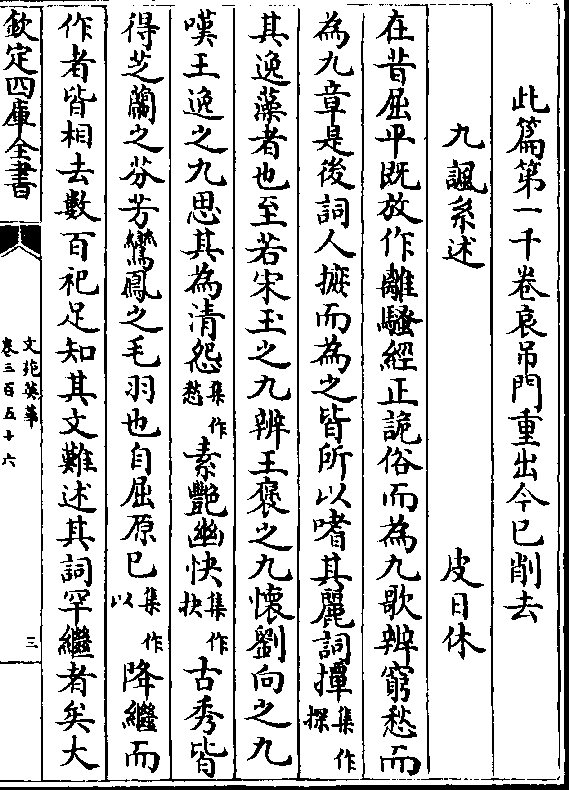 此篇第一千卷哀吊門重出今已削去
九諷系述　皮日休
在昔屈平既放作離騷經正詭俗而為九歌辨窮愁而
為九章是後詞人摭而為之皆所以嗜其麗詞撢集作探
其逸藻者也至若宋玉之九辨王褒之九懷劉向之九
嘆王逸之九思其為清怨集作愁素艷幽快集作抉古秀皆
得芝蘭之芬芳鸞鳳之毛羽也自屈原已集作以降繼而
作者皆相去數百祀足知其文難述其詞罕繼者矣大
欽定四庫全書
文苑英華
卷三百五十六
三